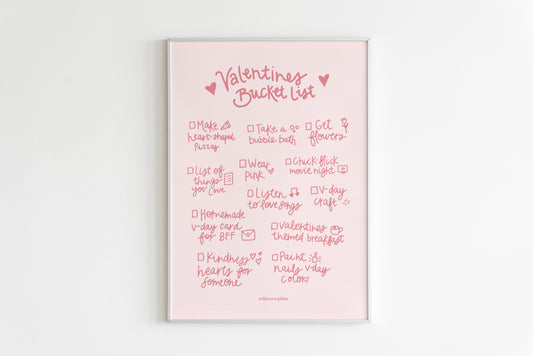 Valentines
Bucket List
Make
heart-shaped
pizzas
Take a
bubble bath
Get
flowers
List of
things
you love
Wear
pink
Chick-flick
movie night
Listen
to love songs
V-day
craft
Homemade
V-day card
for BFF
Valentines
themed breakfast
Kindness
hearts for
someone
Paint
nails v-day
color